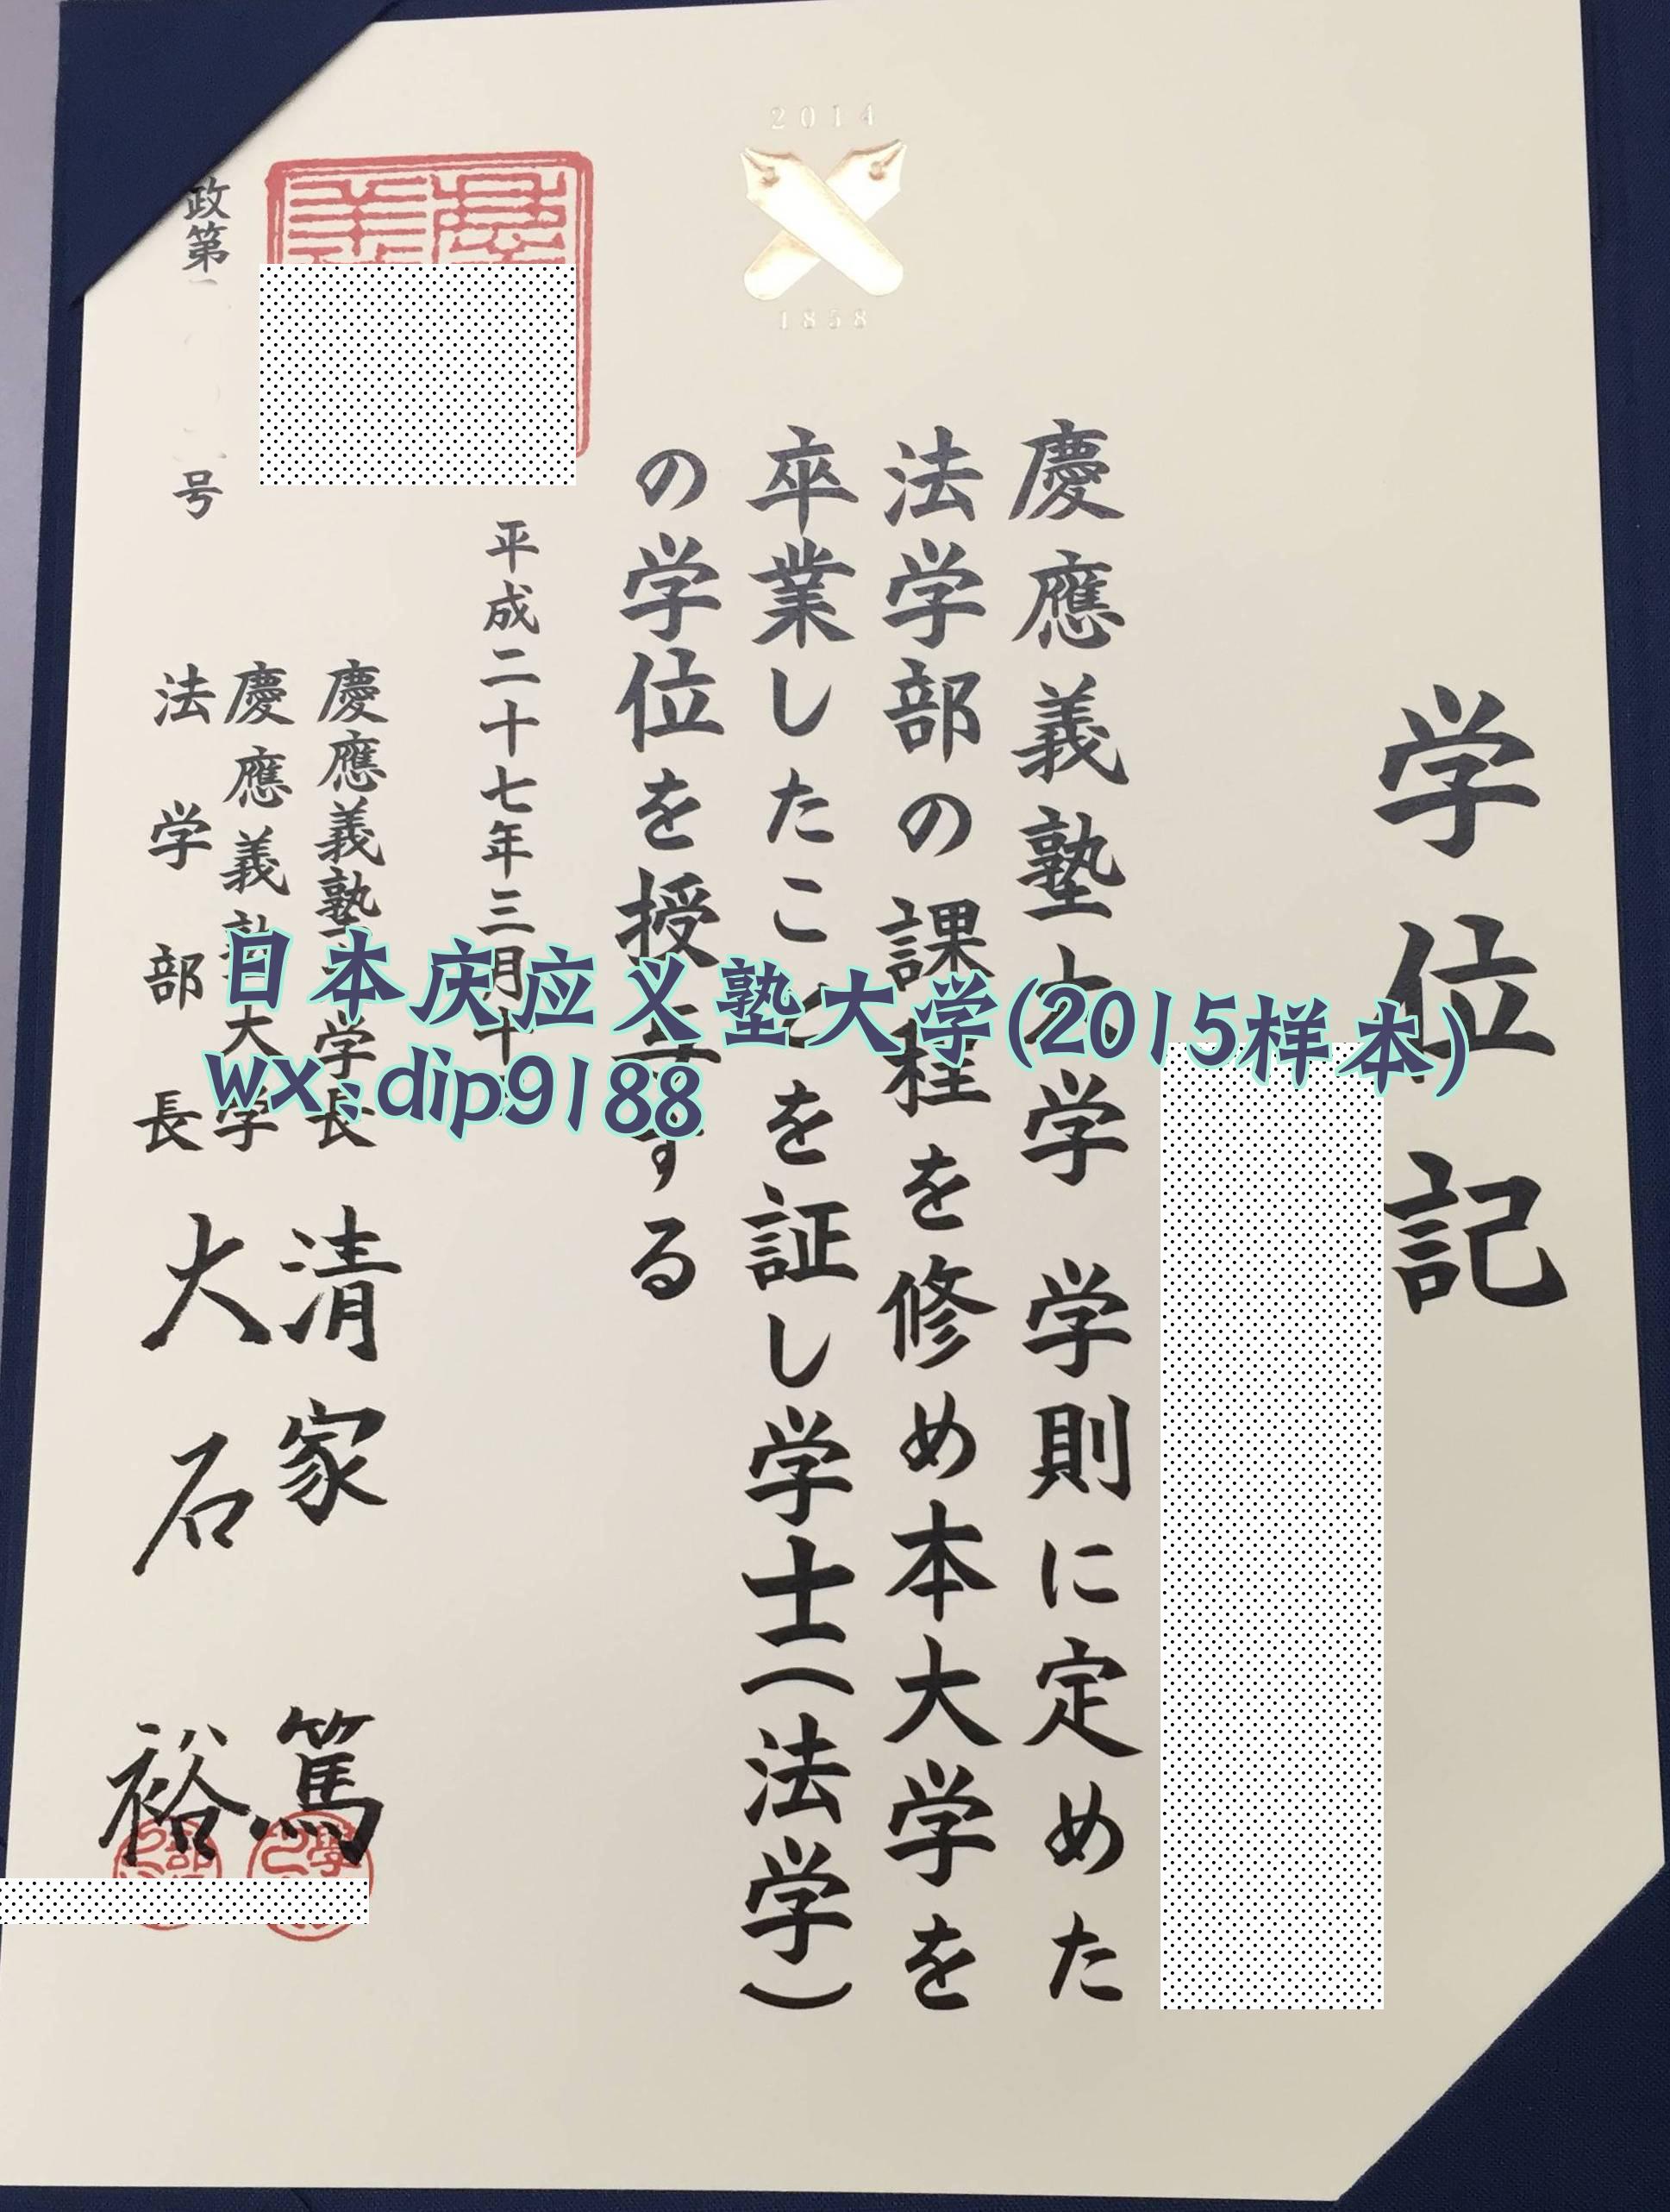 学位記
慶應義塾大学学則に定めた
法学部の課程を修め本大学を
卒業したことを証し学士(法学)
の学位を授与する
平成二十七年三月
慶應義塾長 清家 篤
慶應義塾大学
法学部長 大石 裕
政第
号
2014
1858
日本庆应义塾大学(2015样本)
wx:dip9188